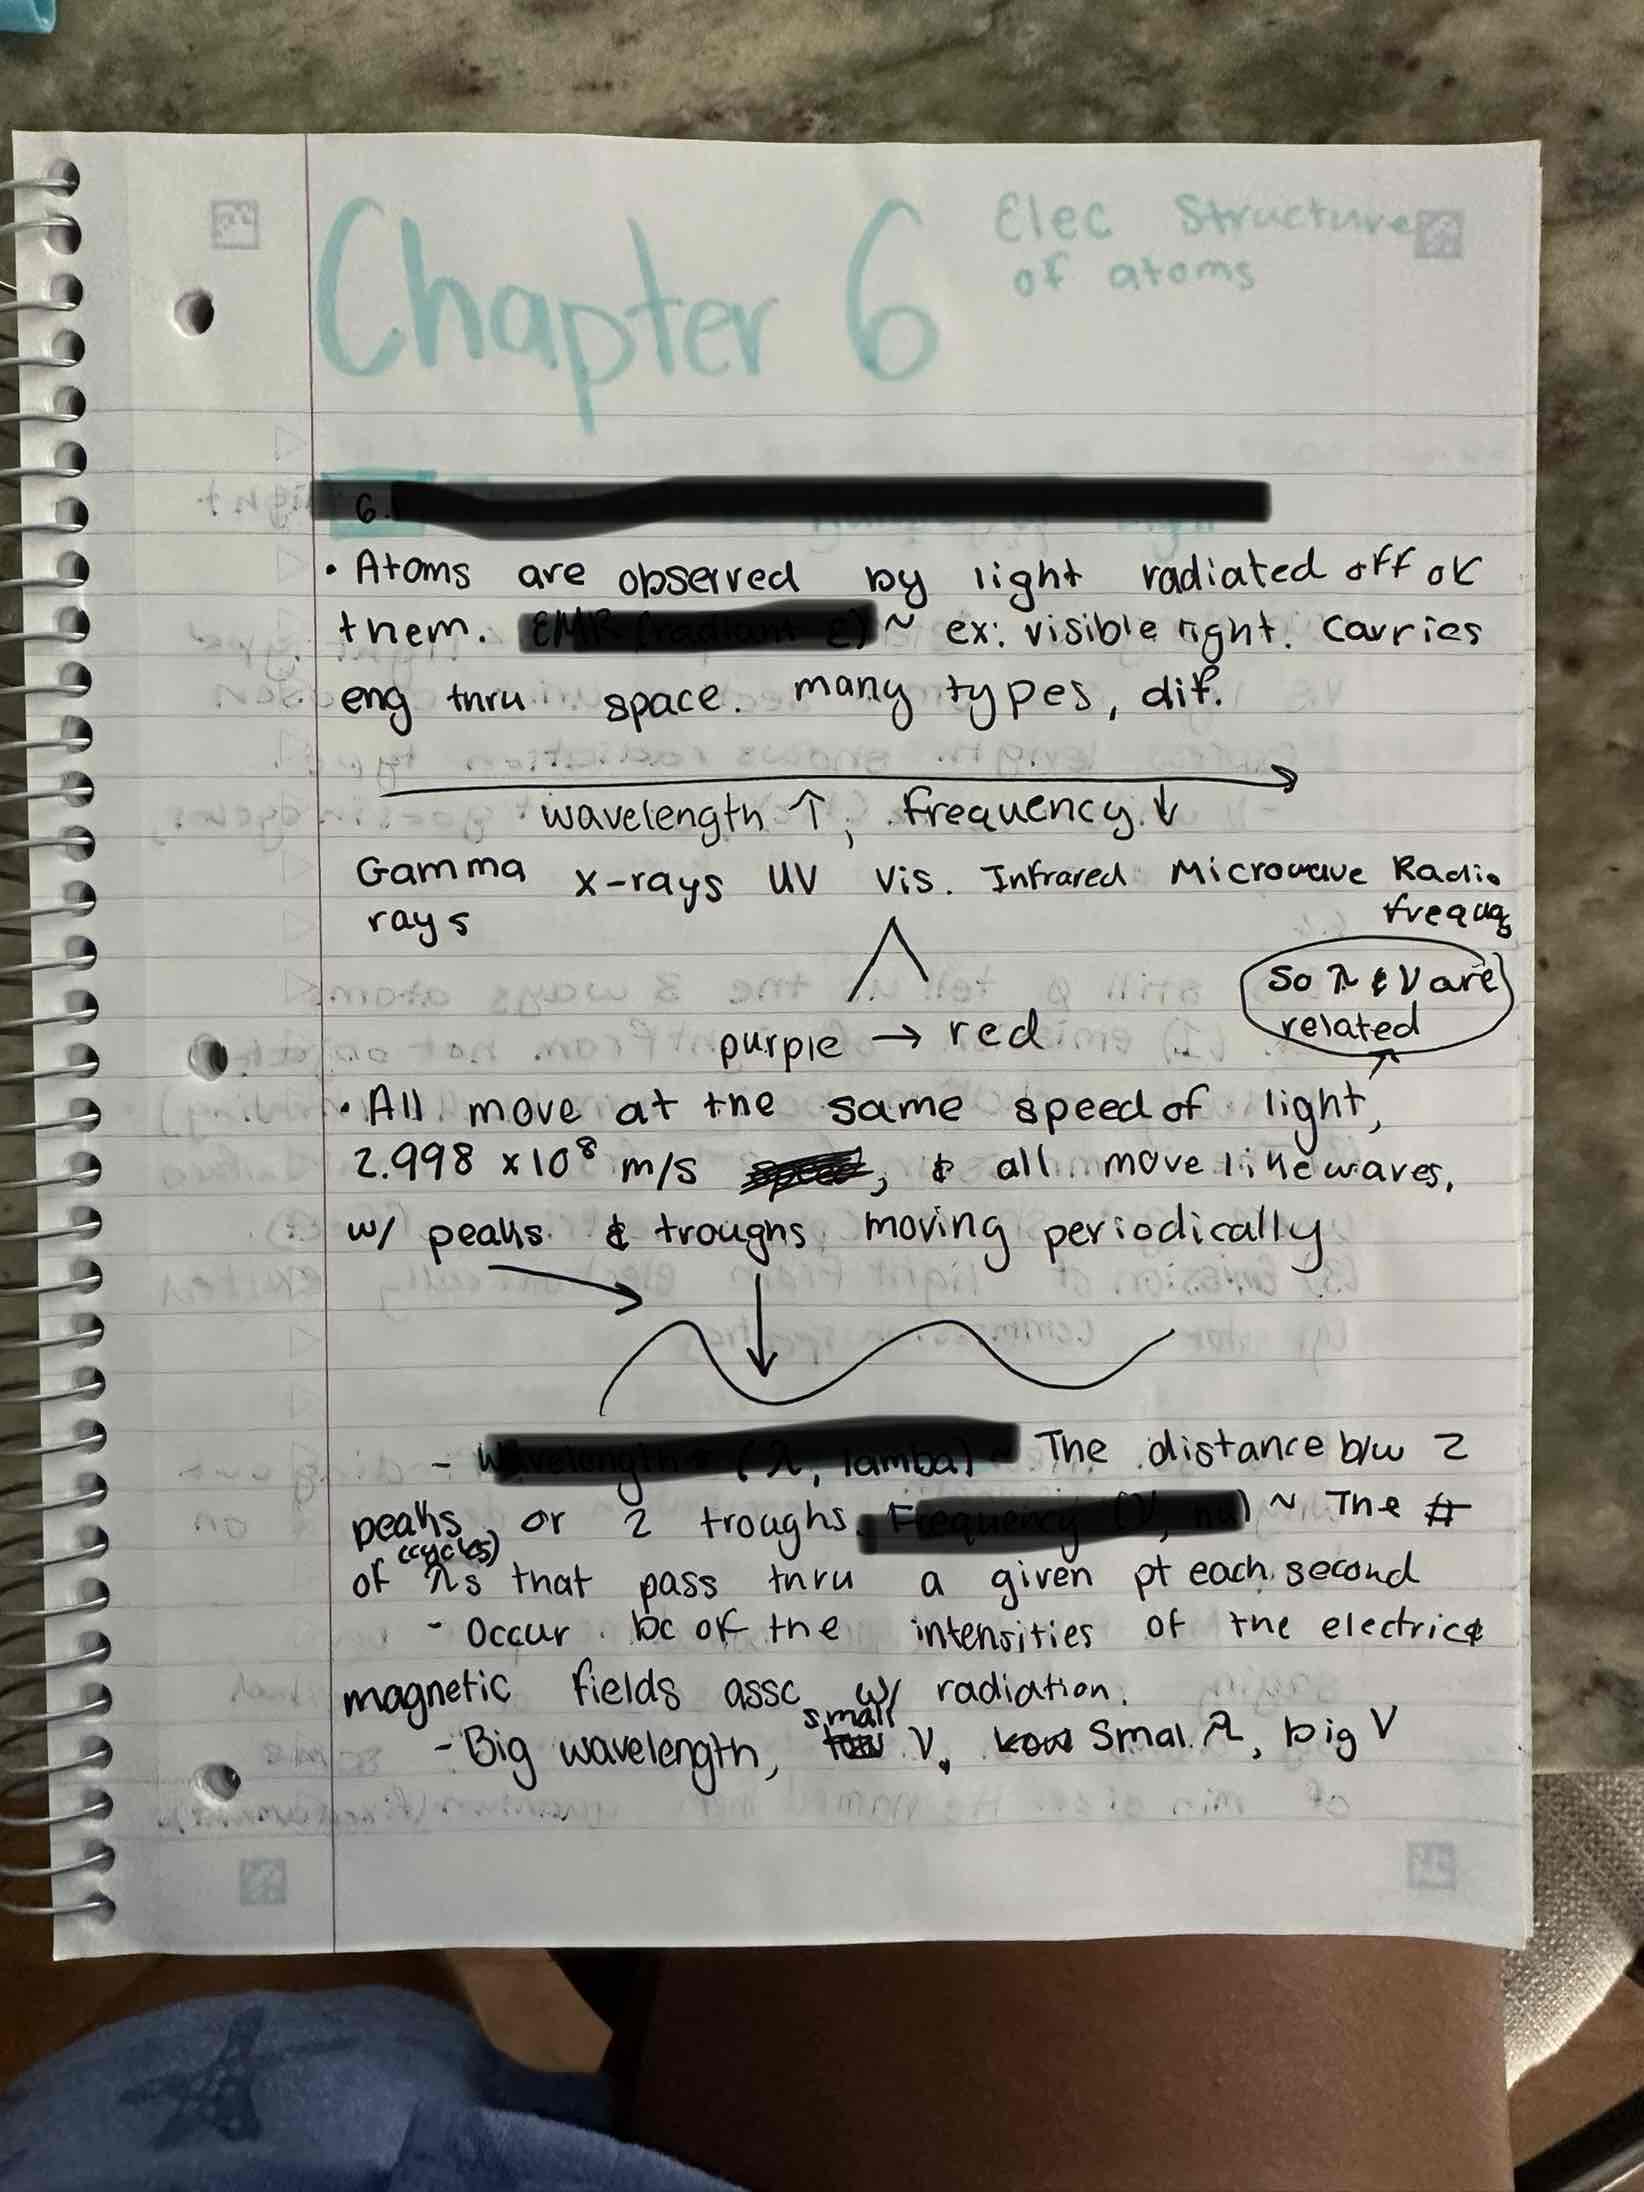 Chapter 6 Elec Structure
of atoms
6.
• Atoms are observed by light radiated off of
them. EMR (radiant E) ~ ex: visible light. Carries
eng thru space. many types, dif.
wavelength ↑, frequency ↓
Gamma x-rays UV Vis. Infrared Microwave Radio
rays
So λ & ν are
related
purple → red
• All move at the same speed of light,
2.998 x10⁸ m/s, & all move like waves,
w/ peaks & troughs moving periodically
- Wavelength (λ, lamba) ~ The distance b/w 2
peaks or 2 troughs. Frequency (ν, nu) ~ The #
(cycles)
of λs that pass thru a given pt each second
- Occur bc of the intensities of the electric &
magnetic fields assc w/ radiation.
small
- Big wavelength, ν, Smal λ, big ν